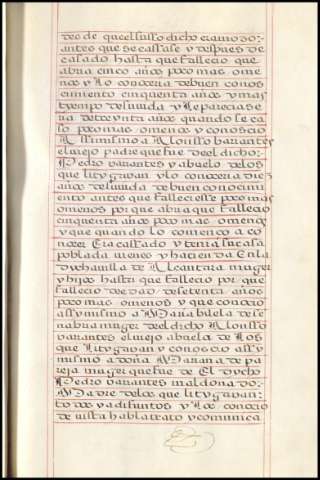 tes de quel suso dicho eramo zo:.
antes que se cassase y despues de
casado hasta que fallecio que
abra cinco años poco mas ome
nos y lo conoceria de buen conos
cimiento cinquenta años y mas
tyempo de su vida y le pareciase
ria de treynta años quando se ca
so poco mas o menos y conoscio
Assimismo a Alonsso barantes
el viejo padre que fue de el dicho:.
Pedro varantes y abuelo de los
que lityguan y lo conoceria diez
años de su vida de buen conocimi
ento antes que falleciesse poco mas
omenos por que abra que fallecio
cinquenta años poco mas omenos
y que quando lo començo a co
nocer Era cassado y tenia su casa
poblada vienes y hacienda En la
dycha villa de Alcantara muger
y hijos hasta que fallecio por que
fallecio de hedad de setenta años
poco mas omenos y que conocio
assymismo a Maria bilela de se
nabria muger de el dicho Alonsso
varantes el viejo abuela de Los
que lityguan y conoscio assy
mismo a doña Mariana de pa
reja muger que fue de El dycho
Pedro varantes maldonado:.
Madre de los que lityguan:.
todos ya difuntos y Los conocio
de vista habla trato y comunica